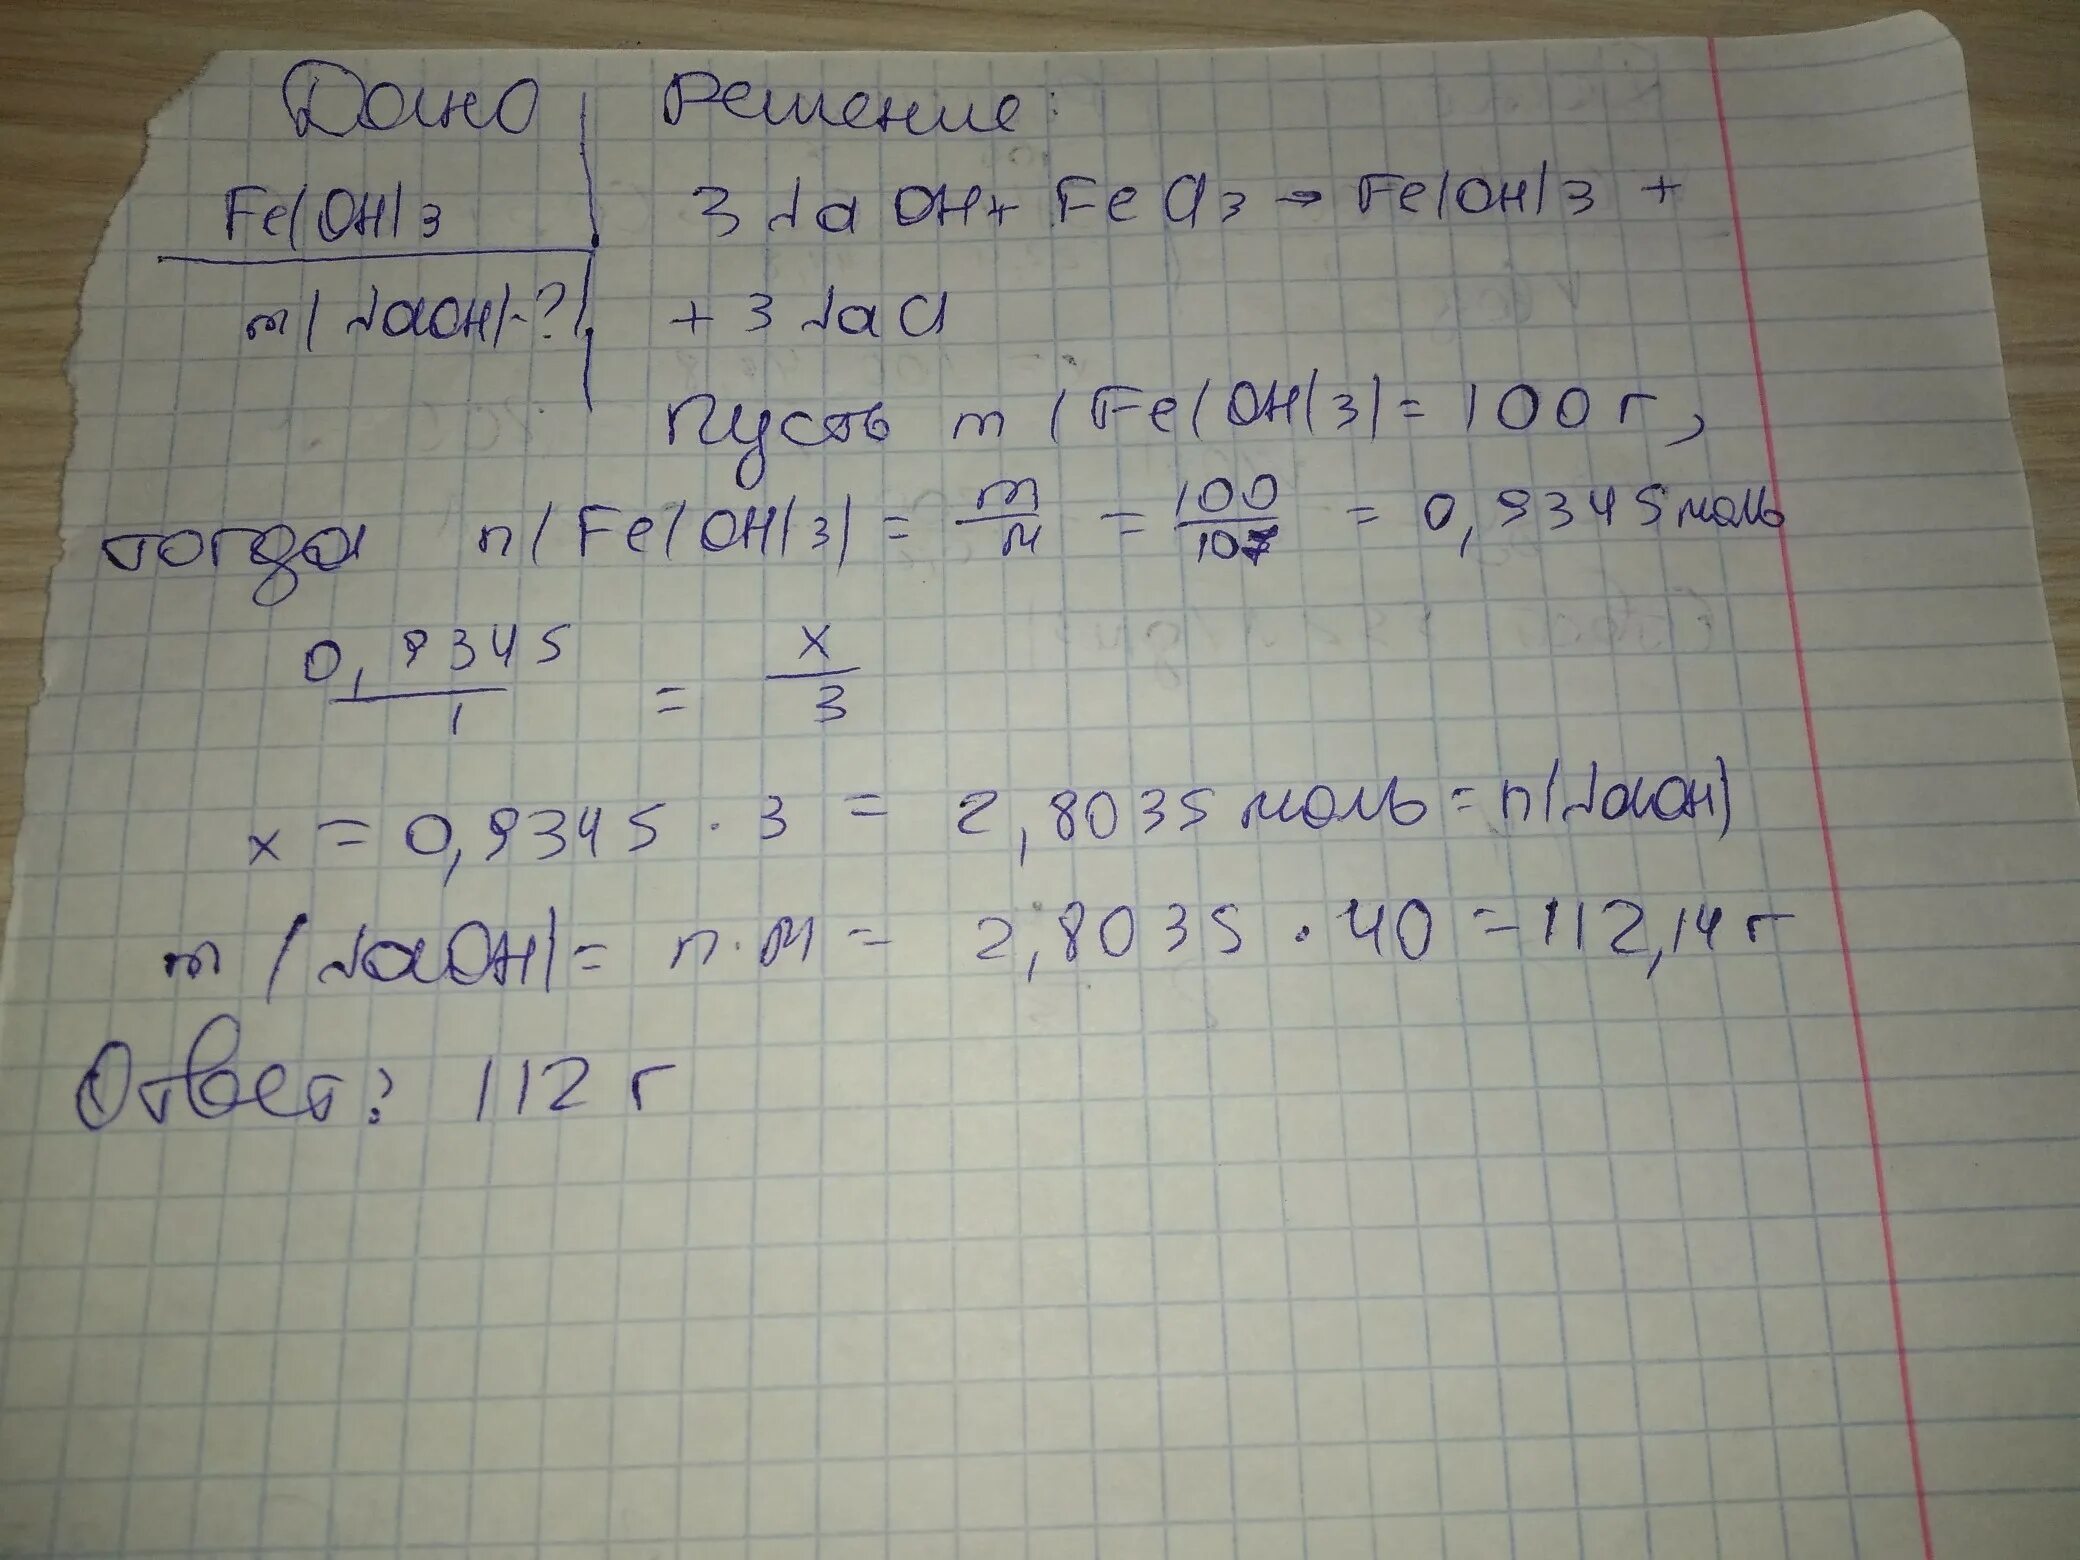 Дано Решение:
Fe(OH)3 3NaOH + FeCl3 → Fe(OH)3 +
m(NaOH)-? + 3NaCl
Пусть m(Fe(OH)3) = 100 г,
тогда n(Fe(OH)3) = m/M = 100/107 = 0,9345 моль
0,9345/1 = x/3
x = 0,9345 · 3 = 2,8035 моль = n(NaOH)
m(NaOH) = n·M = 2,8035 · 40 = 112,14 г
Ответ: 112 г